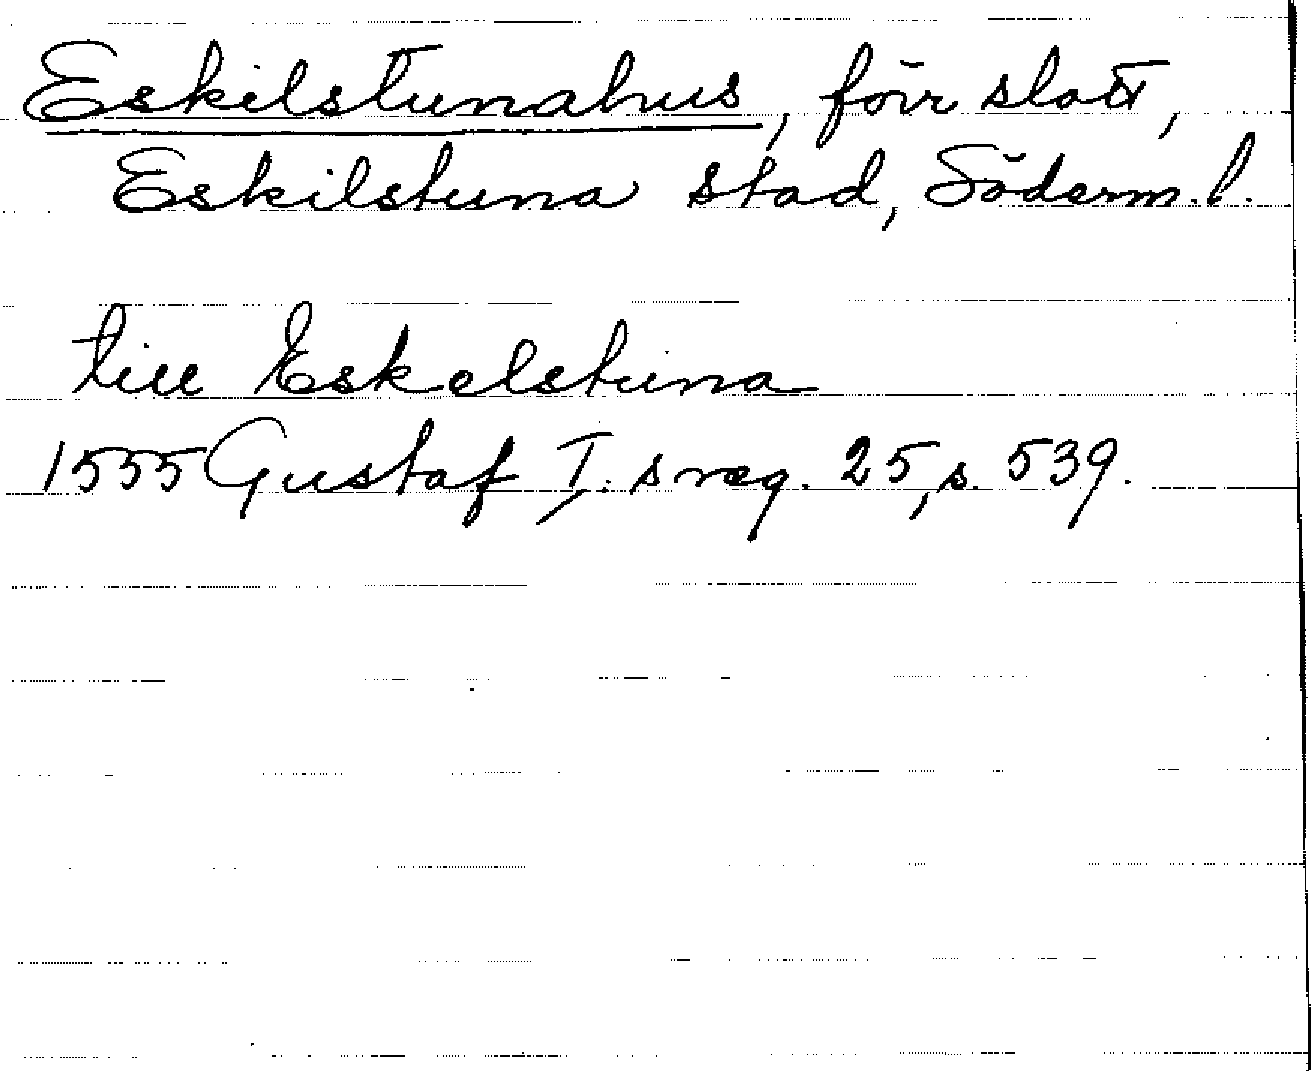 Eskilstunahus, förr slott,
Eskilstuna stad, Söderm. l.
till Eskelstuna
1555 Gustaf I:s reg. 25, s. 539.